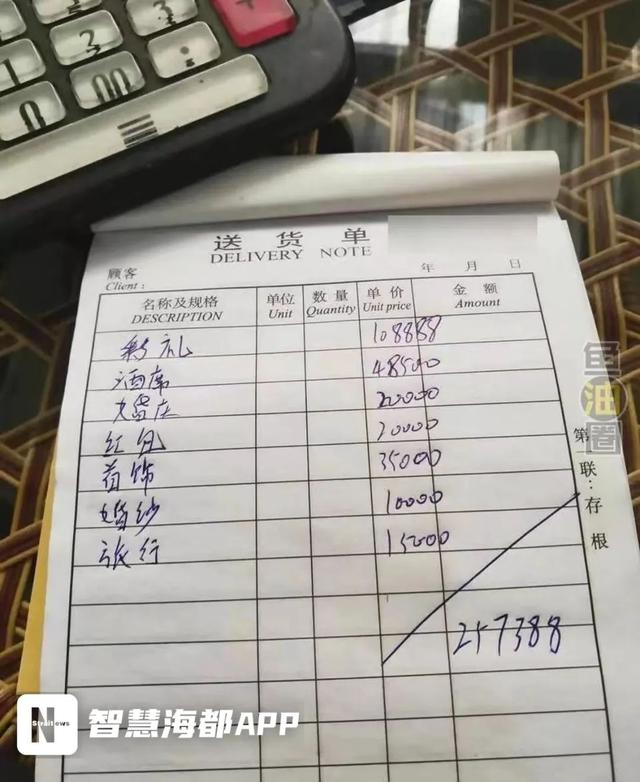 3
1 3
0 00
送货单
DELIVERY NOTE
顾客
Client:
年 月 日
名称及规格 单位 数量 单价 金额
DESCRIPTION Unit Quantity Unit price Amount
彩礼 108888
酒席 48500
婚庆 20000
红包 20000
首饰 35000
婚纱 10000
旅行 15000
257388
第一联:存根
鱼油圈
N
Straitnews
智慧海都APP